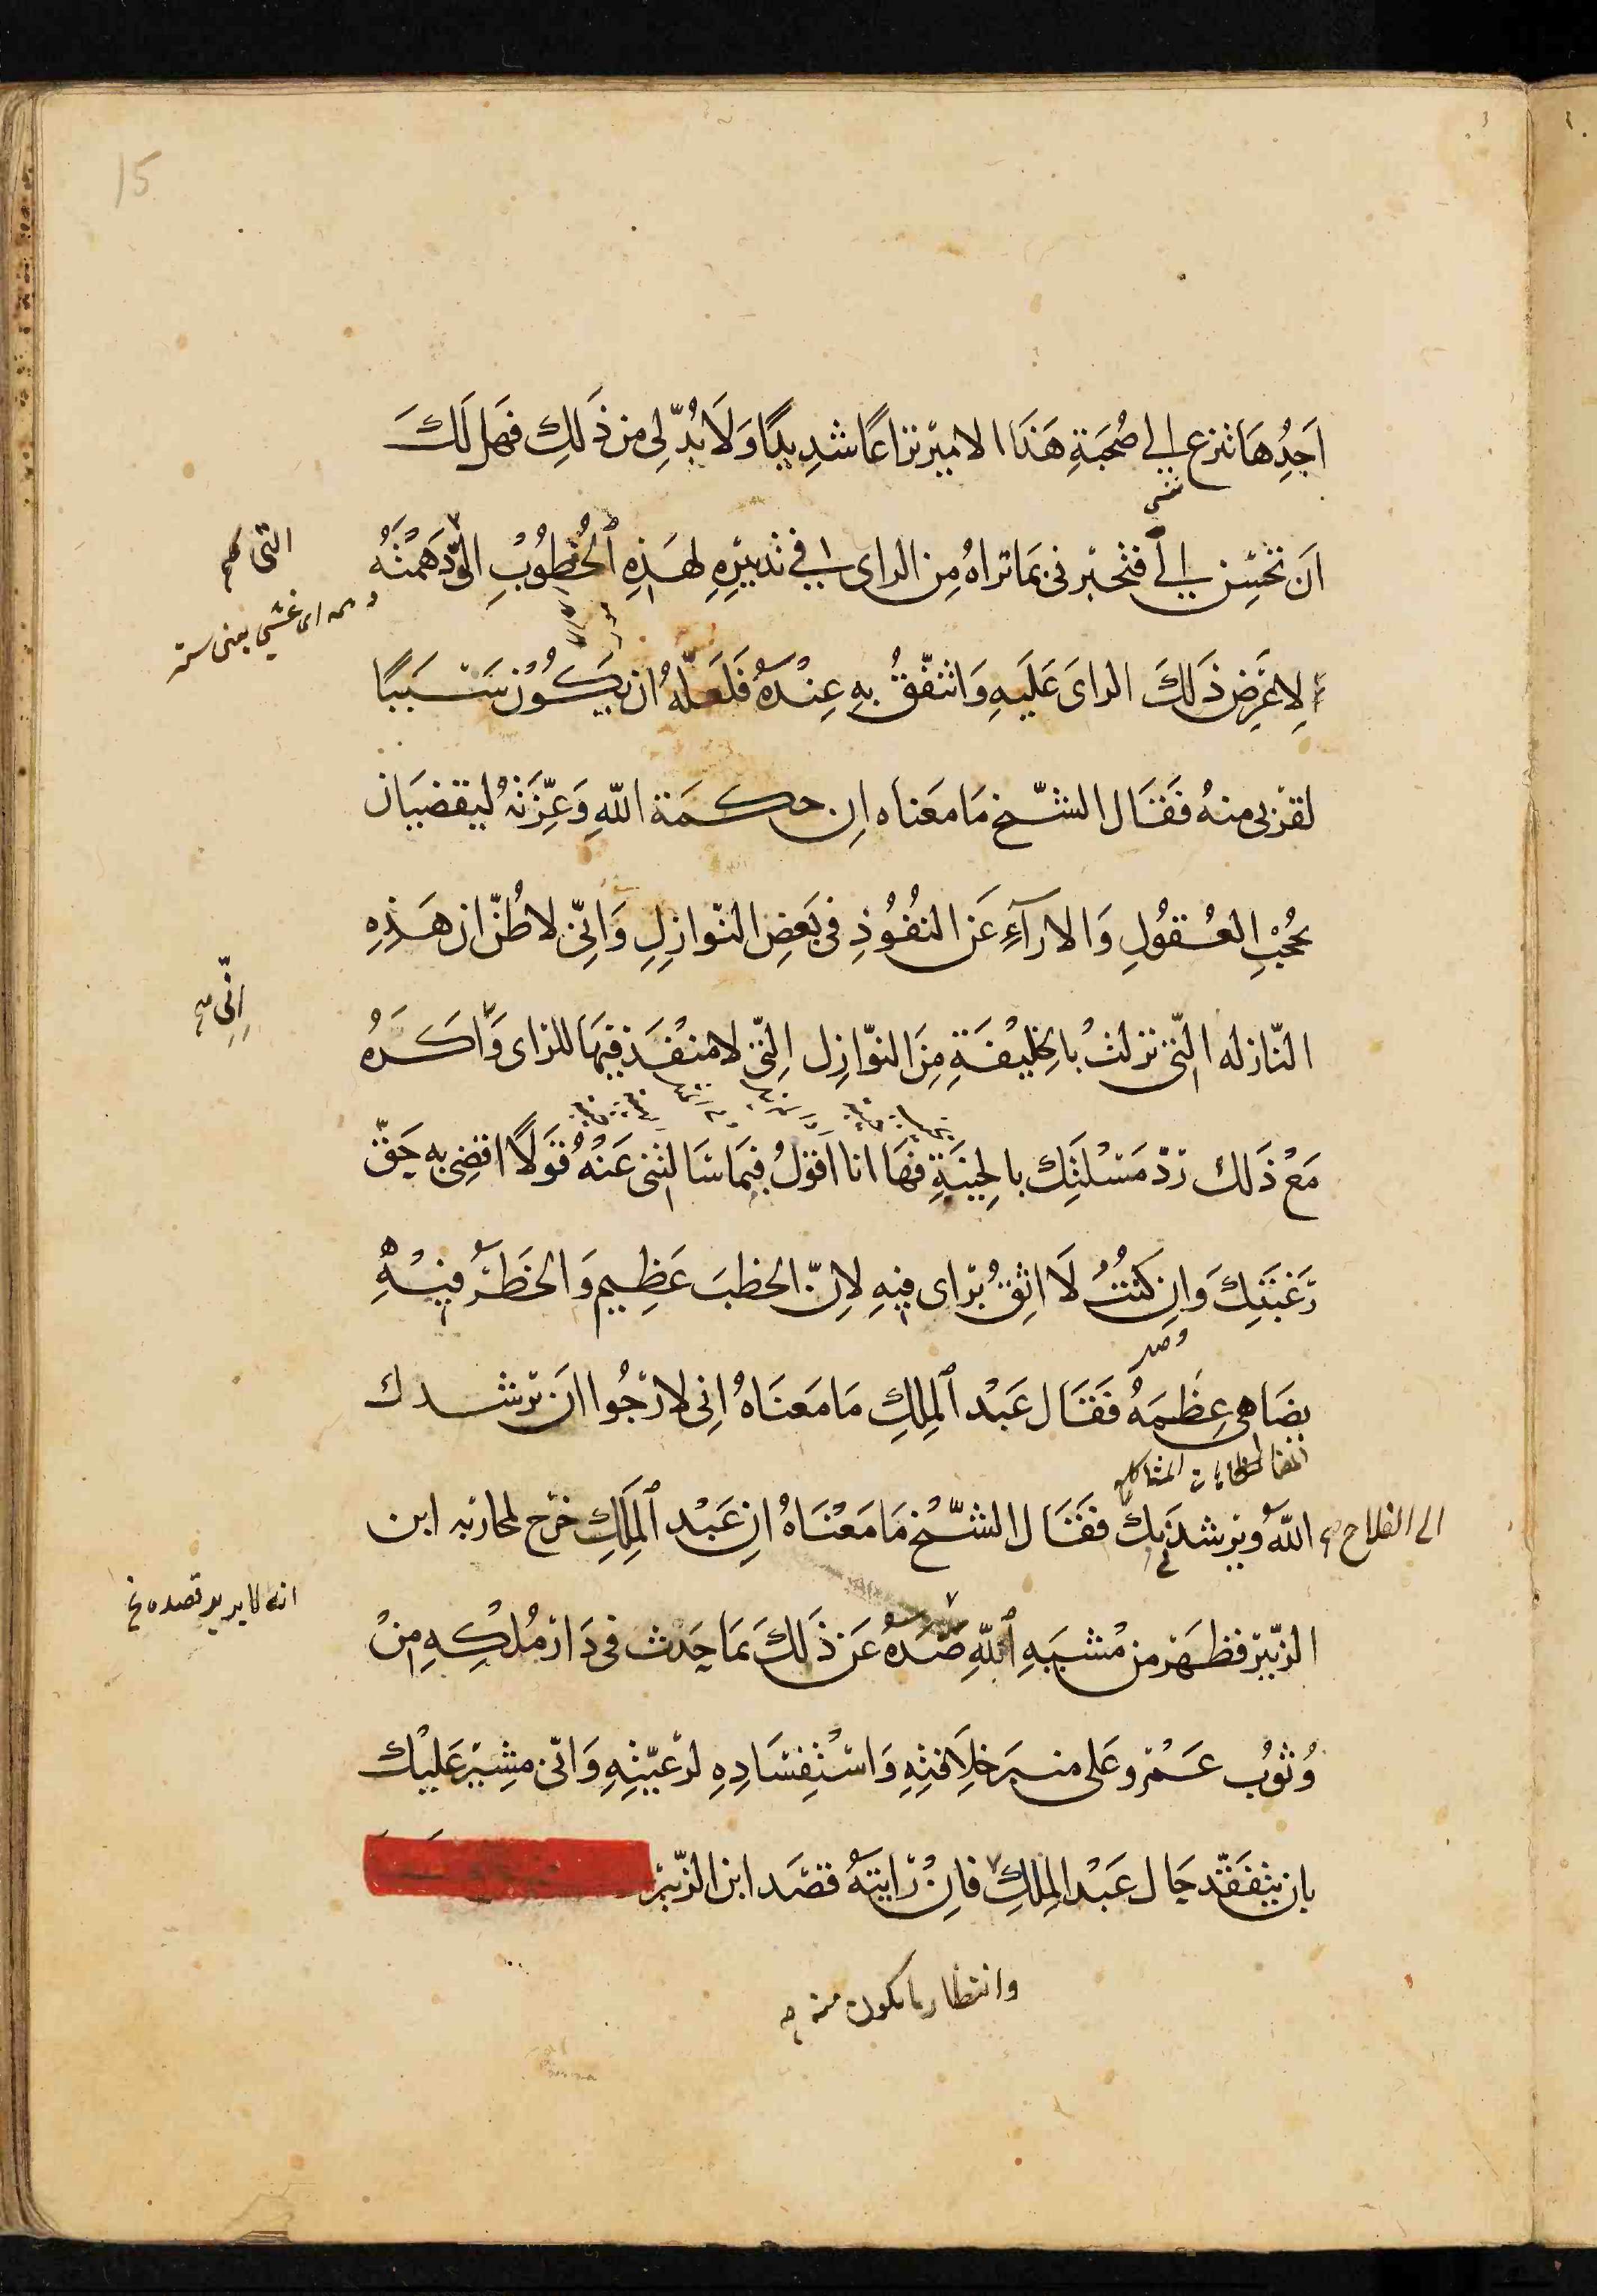 15
اَجِدُهَا تنزع الى صُحبَةِ هَذَا الامير نزاعًا شدِيدًا وَلَا بُدّ لِى من ذَلِكِ فَهل لَكَ
اَن تحسِن الىّ فتخبرنى بمَا تراهُ مِن الراى فى تدبيرِهِ لهَذِهِ الخُطُوبِ الّتى دَهَمَتْهُ
التى
اى غشى يعنى ستر
لِاعَرِض ذَلكَ الراىَ عَلَيهِ وَاتنفّقُ بهِ عِندَهُ فَلَعَلّهُ ان يَكُون سَبَبًا
لقربى منهُ فَقَال الشّيخ مَا مَعَناه اِن حكمَة اللّهِ وَعِزّتهُ ليقضيَان
بحُجْبِ العُقوُلِ وَالارآءِ عَن النفُوُذِ فى بَعَضِ النّوازِلِ وَاِنّى لاظُنّ ان هَذِهِ
اِنّى
النّازله الّتى نزلتْ باِلخليفَةِ مِنَ النوّازِل الِتّى لا منفَذ فيهَا للراى وَاكَرَهُ
مَعْ ذَلك رَدّ مَسْلتَك باِلخِيبَةِ فهَا انا اَقولُ فيمَا سَالتنى عَنْهُ قَولًا اقضِى به حَقّ
رَغبَتِكَ وَاِن كنتُ لَا اثِقُ برَاى فيهِ لِاِنّ الخَطبَ عَظِيم وَالخَطرَ فيهِ
يضَاهى عِظَمَهُ فَقَال عَبْد المِلكِ مَا مَعَنَاهُ اِنى لارجُوا انَ يرشدك
الى الفلاح
اللّهُ ويرشدَنى بك فقَال الشّيخ مَا مَعْنَاهُ انِ عَبْد المِلَكِ خرَج لمحاربه ابن
انه لا يريد قصده
الزّبَير فظهَر من مْشيَةِ اللّهِ صَدّهُ عَن ذَلكَ بمَا حَدث فى دَار مُلكِهِ مِنْ
وُثوُب عَمْرو عَلى منبرَ خلَافتِهِ وَاسْتِفسَادِهِ لرعيّتِهِ وَانّى مشِير عَليْك
باِن يتفَقّد حَال عَبْد المِلكِ فاِنْ رَايتَهُ قصَد ابن الزّبَير
وانتظار ما يكون منه